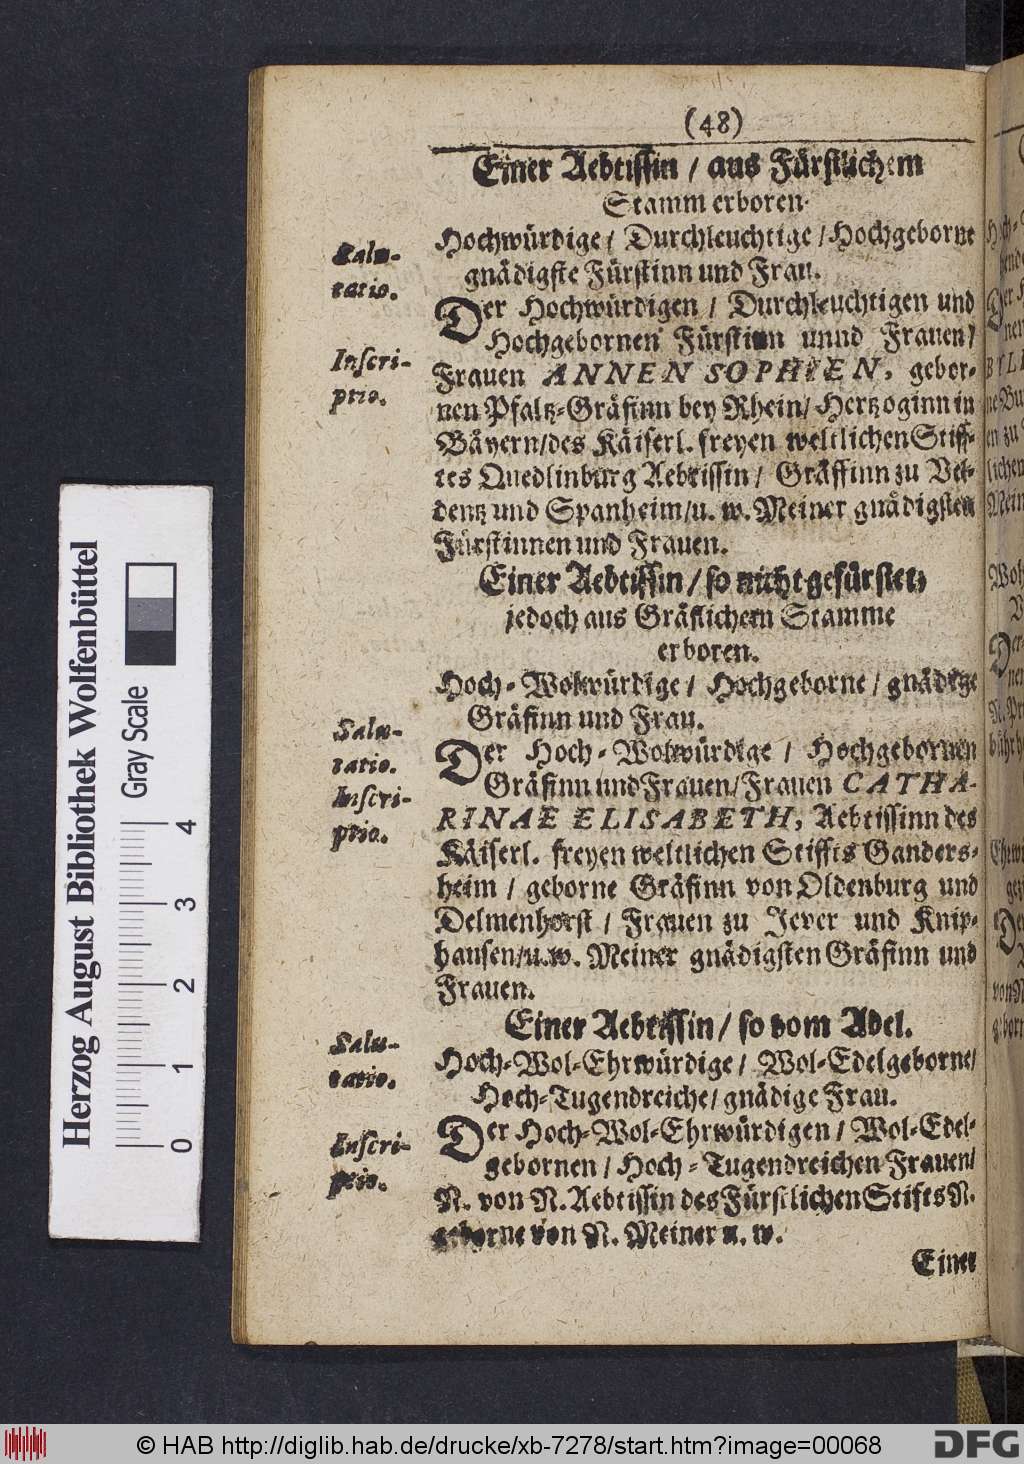 (48)
Einer Aebtissin / aus Fürstlichem
Stamm erboren.
Salu-
tatio.
Hochwürdige / Durchleuchtige / Hochgeborne
gnädigste Fürstinn und Frau.
Inscri-
ptio.
Der Hochwürdigen / Durchleuchtigen und
Hochgebornen Fürstinn unnd Frauen /
Frauen ANNEN SOPHIEN, gebor-
nen Pfaltz-Gräfinn bey Rhein / Hertzoginn in
Bäyern / des Käiserl. freyen weltlichen Stiff-
tes Quedlinburg Aebtissin / Gräffinn zu Vel-
dentz und Spanheim / u. w. Meiner gnädigsten
Fürstinnen und Frauen.
Einer Aebtissin / so nicht gefürstet,
jedoch aus Gräflichem Stamme
erboren.
Salu-
tatio.
Hoch-Wolwürdige / Hochgeborne / gnädige
Gräfinn und Frau.
Inscri-
ptio.
Der Hoch-Wolwürdige / Hochgebornen
Gräfinn und Frauen / Frauen CATHA-
RINAE ELISABETH, Aebtissinn des
Käiserl. freyen weltlichen Stiffts Ganders-
heim / geborne Gräfinn von Oldenburg und
Delmenhorst / Frauen zu Jever und Knip-
hausen / u. w. Meiner gnädigsten Gräfinn und
Frauen.
Einer Aebtissin / so vom Adel.
Salu-
tatio.
Hoch-Wol-Ehrwürdige / Wol-Edelgeborne /
Hoch-Tugendreiche / gnädige Frau.
Inscri-
ptio.
Der Hoch-Wol-Ehrwürdigen / Wol-Edel-
gebornen / Hoch-Tugendreichen Frauen /
N. von N. Aebtissin des Fürstlichen Stifts N.
geborne von N. Meiner u. w.
Einer
Herzog August Bibliothek Wolfenbüttel
Gray Scale
0 1 2 3 4
© HAB http://diglib.hab.de/drucke/xb-7278/start.htm?image=00068
DFG